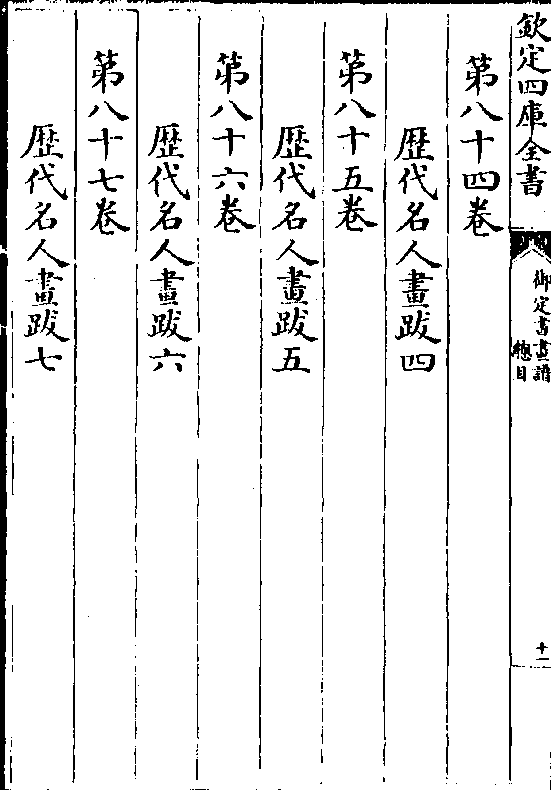 欽定四庫全書
御定書畫譜
總目
十一
第八十四卷
歴代名人畫跋四
第八十五卷
歴代名人畫跋五
第八十六卷
歴代名人畫跋六
第八十七卷
歴代名人畫跋七